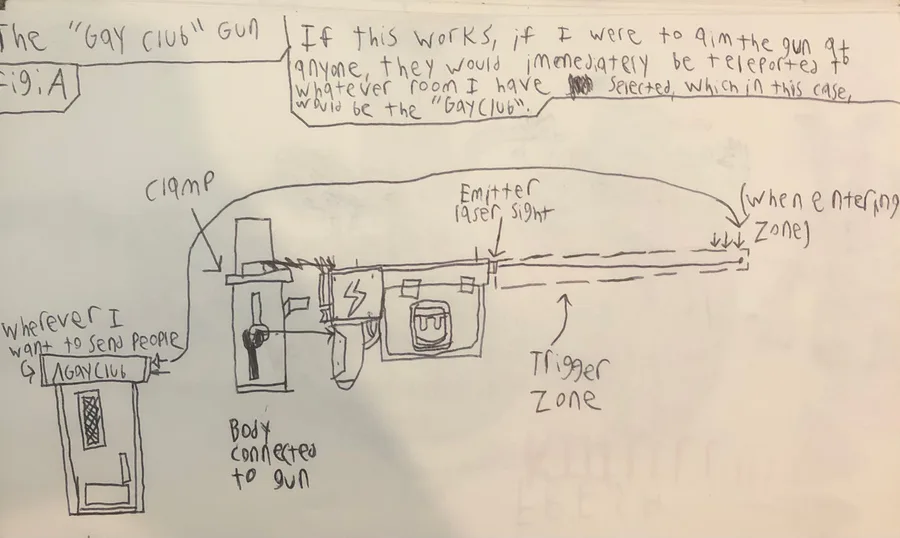 The "Gay club" Gun
Fig:A
If this works, if I were to aim the gun at
anyone, they would immediately be teleported to
whatever room I have selected, which in this case,
would be the "Gay Club".
Clamp
Emitter
laser sight
(when entering
zone)
wherever I
want to send people
A GAY CLUB
Trigger
Zone
Body
connected
to gun